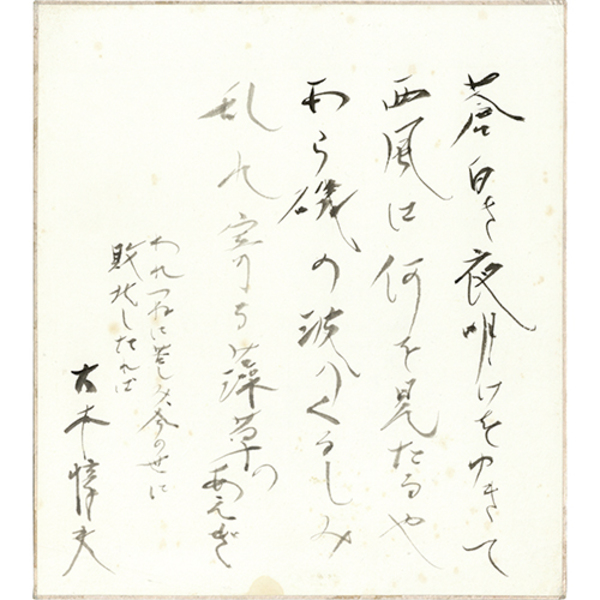 蒼白き夜明けをゆきて
西風は何を見たるや
あら磯の波のくるしみ
乱れ寄る藻草のあえぎ
われつねに苦しみ今の世に
敗北したれば
大木惇夫